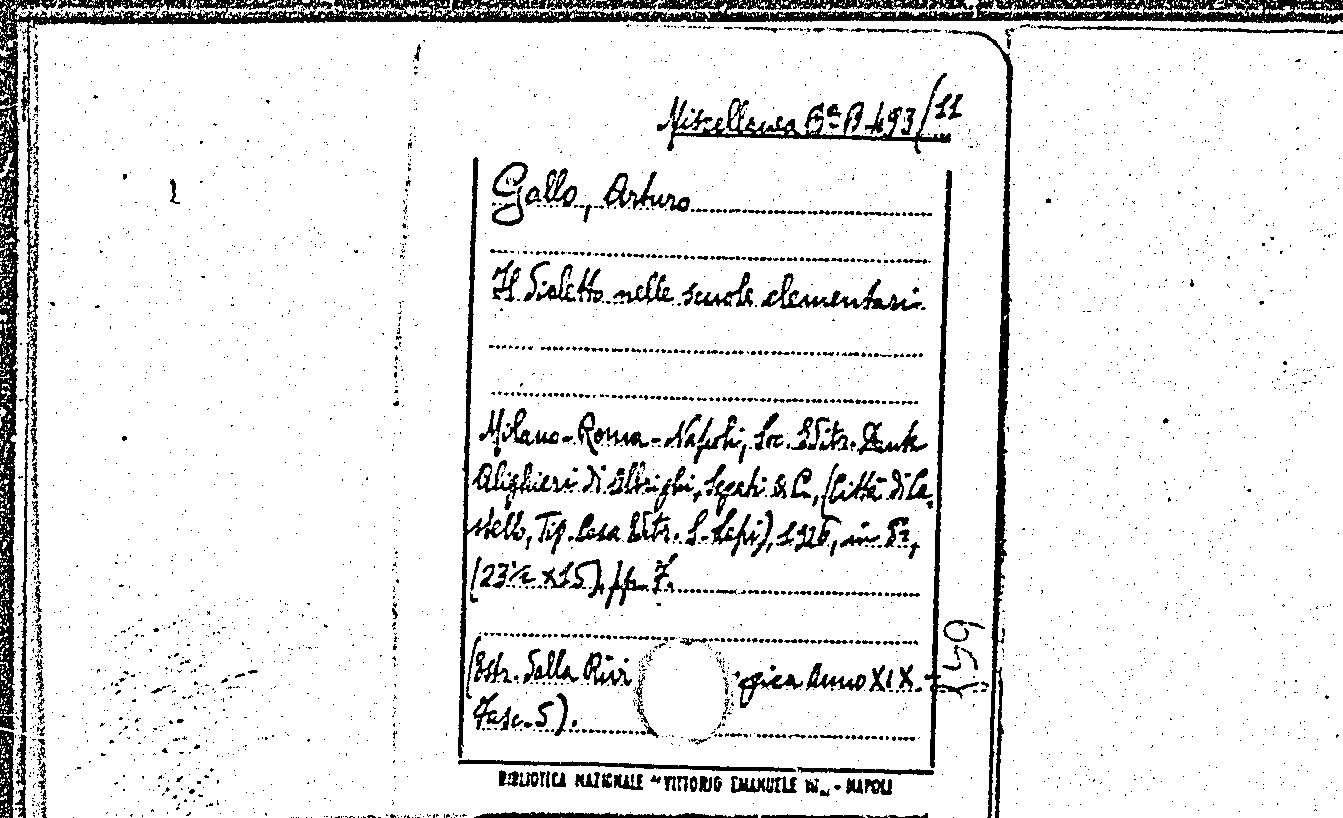 Miscellanea Bª B 493/11
Gallo, Arturo
Il dialetto nelle scuole elementari.
Milano-Roma-Napoli, Soc. Editr. Dante
Alighieri di Albrighi, Segati & C., (Città di Ca-
stello, Tip. Casa Editr. S. Lapi), in 8º,
(23½ x 15), pp. 7.
(Estr. dalla Rivi gica Anno XIX. -
Fasc. 5).
BIBLIOTECA NAZIONALE "VITTORIO EMANUELE III" - NAPOLI